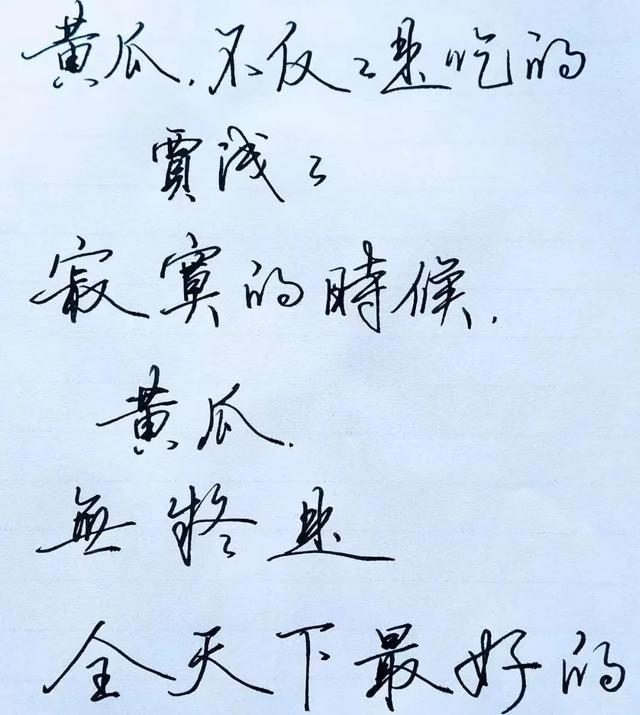 黄瓜,不仅々是吃的
賈浅々
寂寞的時候,
黄瓜,
無疑是
全天下最好的